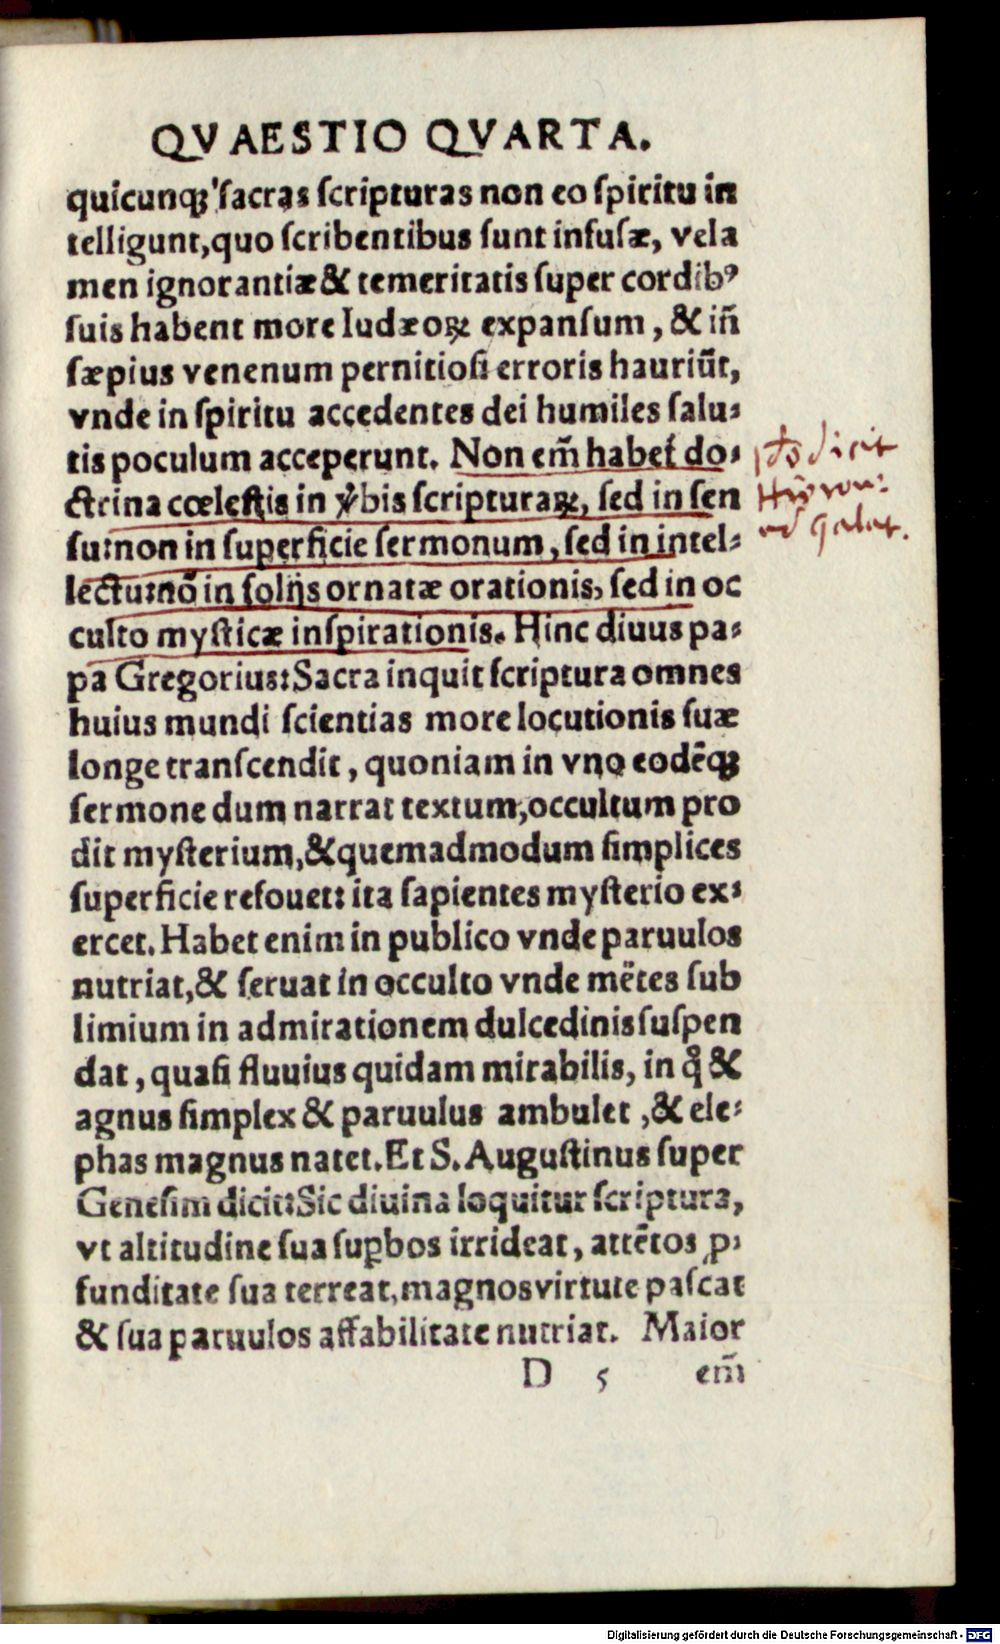 QVAESTIO QVARTA.
quicunqꝫ sacras ſcripturas non eo ſpiritu in
telligunt, quo ſcribentibus ſunt infuſæ, vela
men ignorantiæ & temeritatis ſuper cordibꝰ
ſuis habent more Iudæoꝝ expanſum, & iñ
ſæpius venenum pernitioſi erroris hauriũt,
vnde in ſpiritu accedentes dei humiles ſalu⸗
tis poculum acceperunt. Non em̃ habet do⸗
ctrina cœleſtis in v̓bis ſcripturaꝝ, ſed in ſen
ſu: non in ſuperficie ſermonum, ſed in intel⸗
lectu: nõ in folijs ornatæ orationis, ſed in oc
culto myſticæ inſpirationis. Hinc diuus pa⸗
pa Gregorius: Sacra inquit ſcriptura omnes
huius mundi ſcientias more locutionis ſuæ
longe tranſcendit, quoniam in vno eodẽqꝫ
ſermone dum narrat textum, occultum pro
dit myſterium, & quemadmodum ſimplices
ſuperficie refouet: ita ſapientes myſterio ex⸗
ercet. Habet enim in publico vnde paruulos
nutriat, & ſeruat in occulto vnde mẽtes ſub
limium in admirationem dulcedinis ſuſpen
dat, quaſi fluuius quidam mirabilis, in q̊ &
agnus ſimplex & paruulus ambulet, & ele⸗
phas magnus natet. Et S. Auguſtinus ſuper
Geneſim dicit: Sic diuina loquitur ſcriptura,
vt altitudine ſua ſuꝑbos irrideat, attẽtos ꝓ⸗
funditate ſua terreat, magnos virtute paſcat
& ſua paruulos affabilitate nutriat. Maior
D 5 em̃
dicit
Hieron:
ad galat.
Digitalisierung gefördert durch die Deutsche Forschungsgemeinschaft - DFG